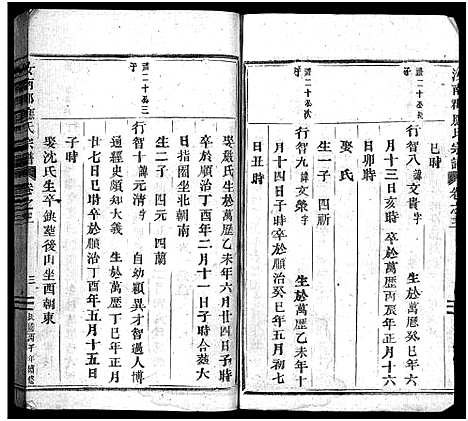 汝南郡應氏宗譜 卷之三
巳時
第二十公次子
行智八 諱文貴字 生於萬歷癸卯年六
月十三日亥時卒於萬歷丙辰年正月十六
日卯時
娶氏
生一子 四新
第二十公次子
行智九 諱文榮字 生於萬歷乙未年十
月十四日子時卒於順治癸巳年五月初七
日丑時
娶嚴氏生於萬歷乙未年六月廿四日子時
卒於順治丁酉年二月十一日子時合葬大
日指園坐北朝南
生二子 四元 四蘭
第二十公三子
行智十 諱元清字 自幼穎異才智過人博
通經史頗知大義 生於萬歷丁巳年正月
廿七日巳時卒於順治丁酉年五月十五日
子時
娶沈氏生卒缺墓後山坐西朝東
汝南郡應氏宗譜 卷之三 三